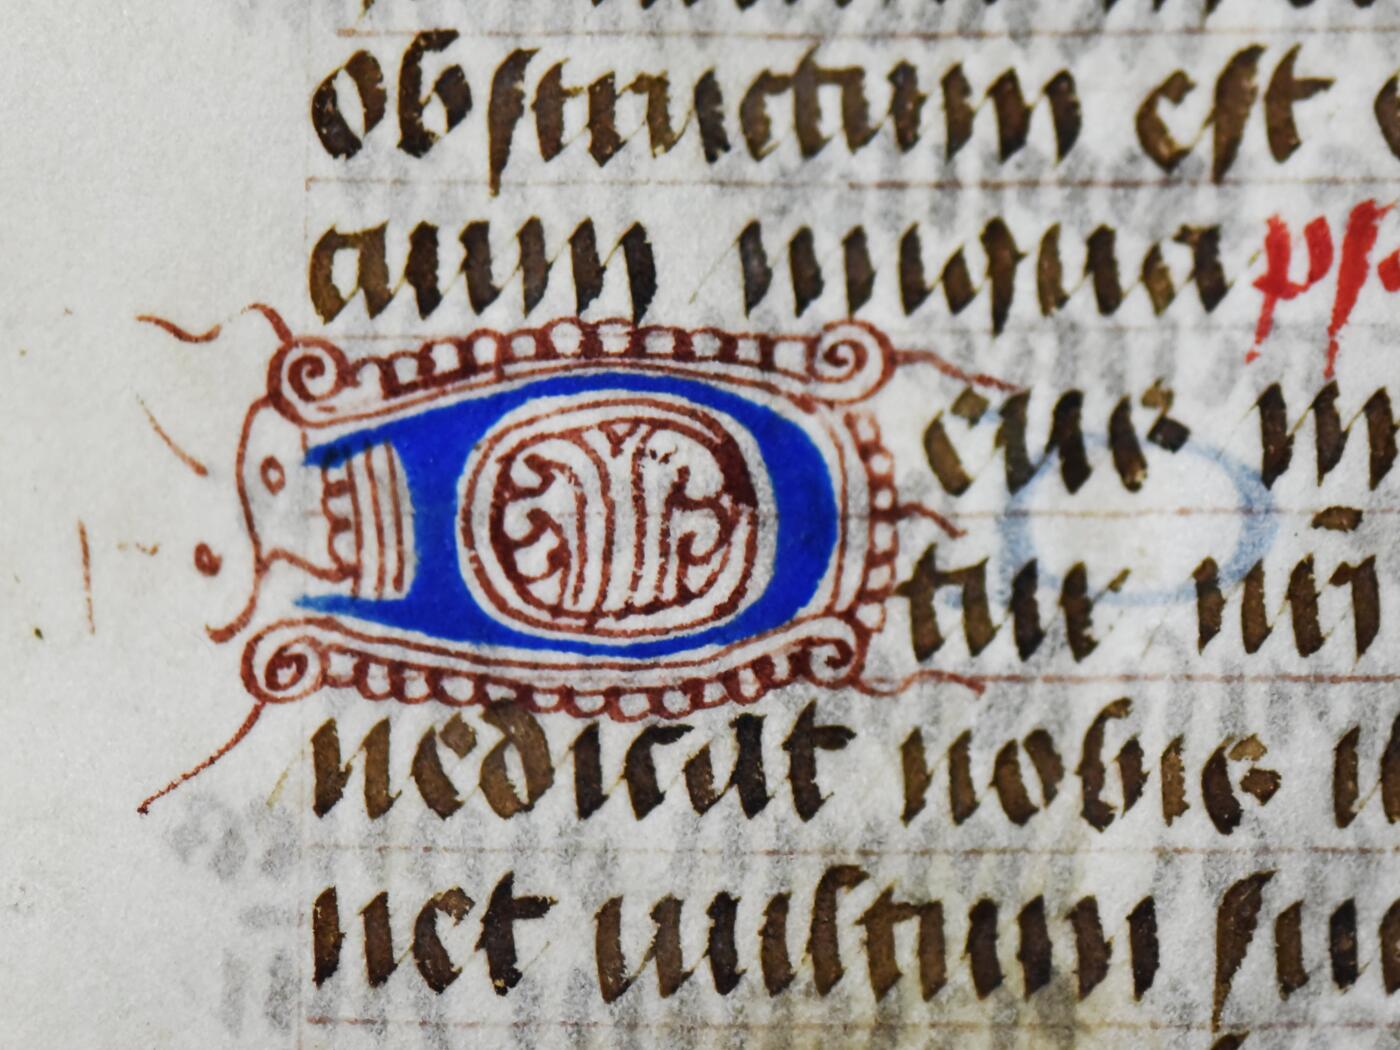 obstructum est
cium iniqua ps
Deus m
tur nr̄i
nedicat nobis
net uultum su